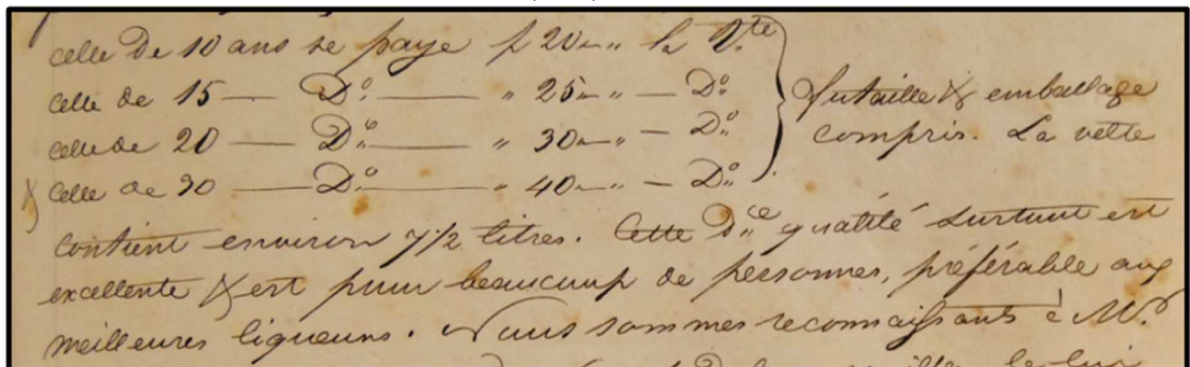 celle de 10 ans se paye f 20 „ la V.te
celle de 15 — D.o — „ 25 „ — D.o
celle de 20 — D.o — „ 30 „ — D.o
celle de 30 — D.o — „ 40 „ — D.o
futaille & emballage
compris. La velte
contient environ 7 1/2 litres. Cette d.ce qualité surtout est
excellente & est pour beaucoup de personnes, préférable aux
meilleures liqueurs. Nous sommes reconnaissants à M.r